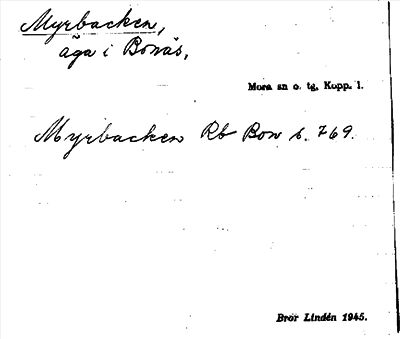 Myrbacken,
äga i Bonäs,
Mora sn o. tg. Kopp. l.
Myrbacken Rb Bon s. 769.
Bror Lindén 1945.